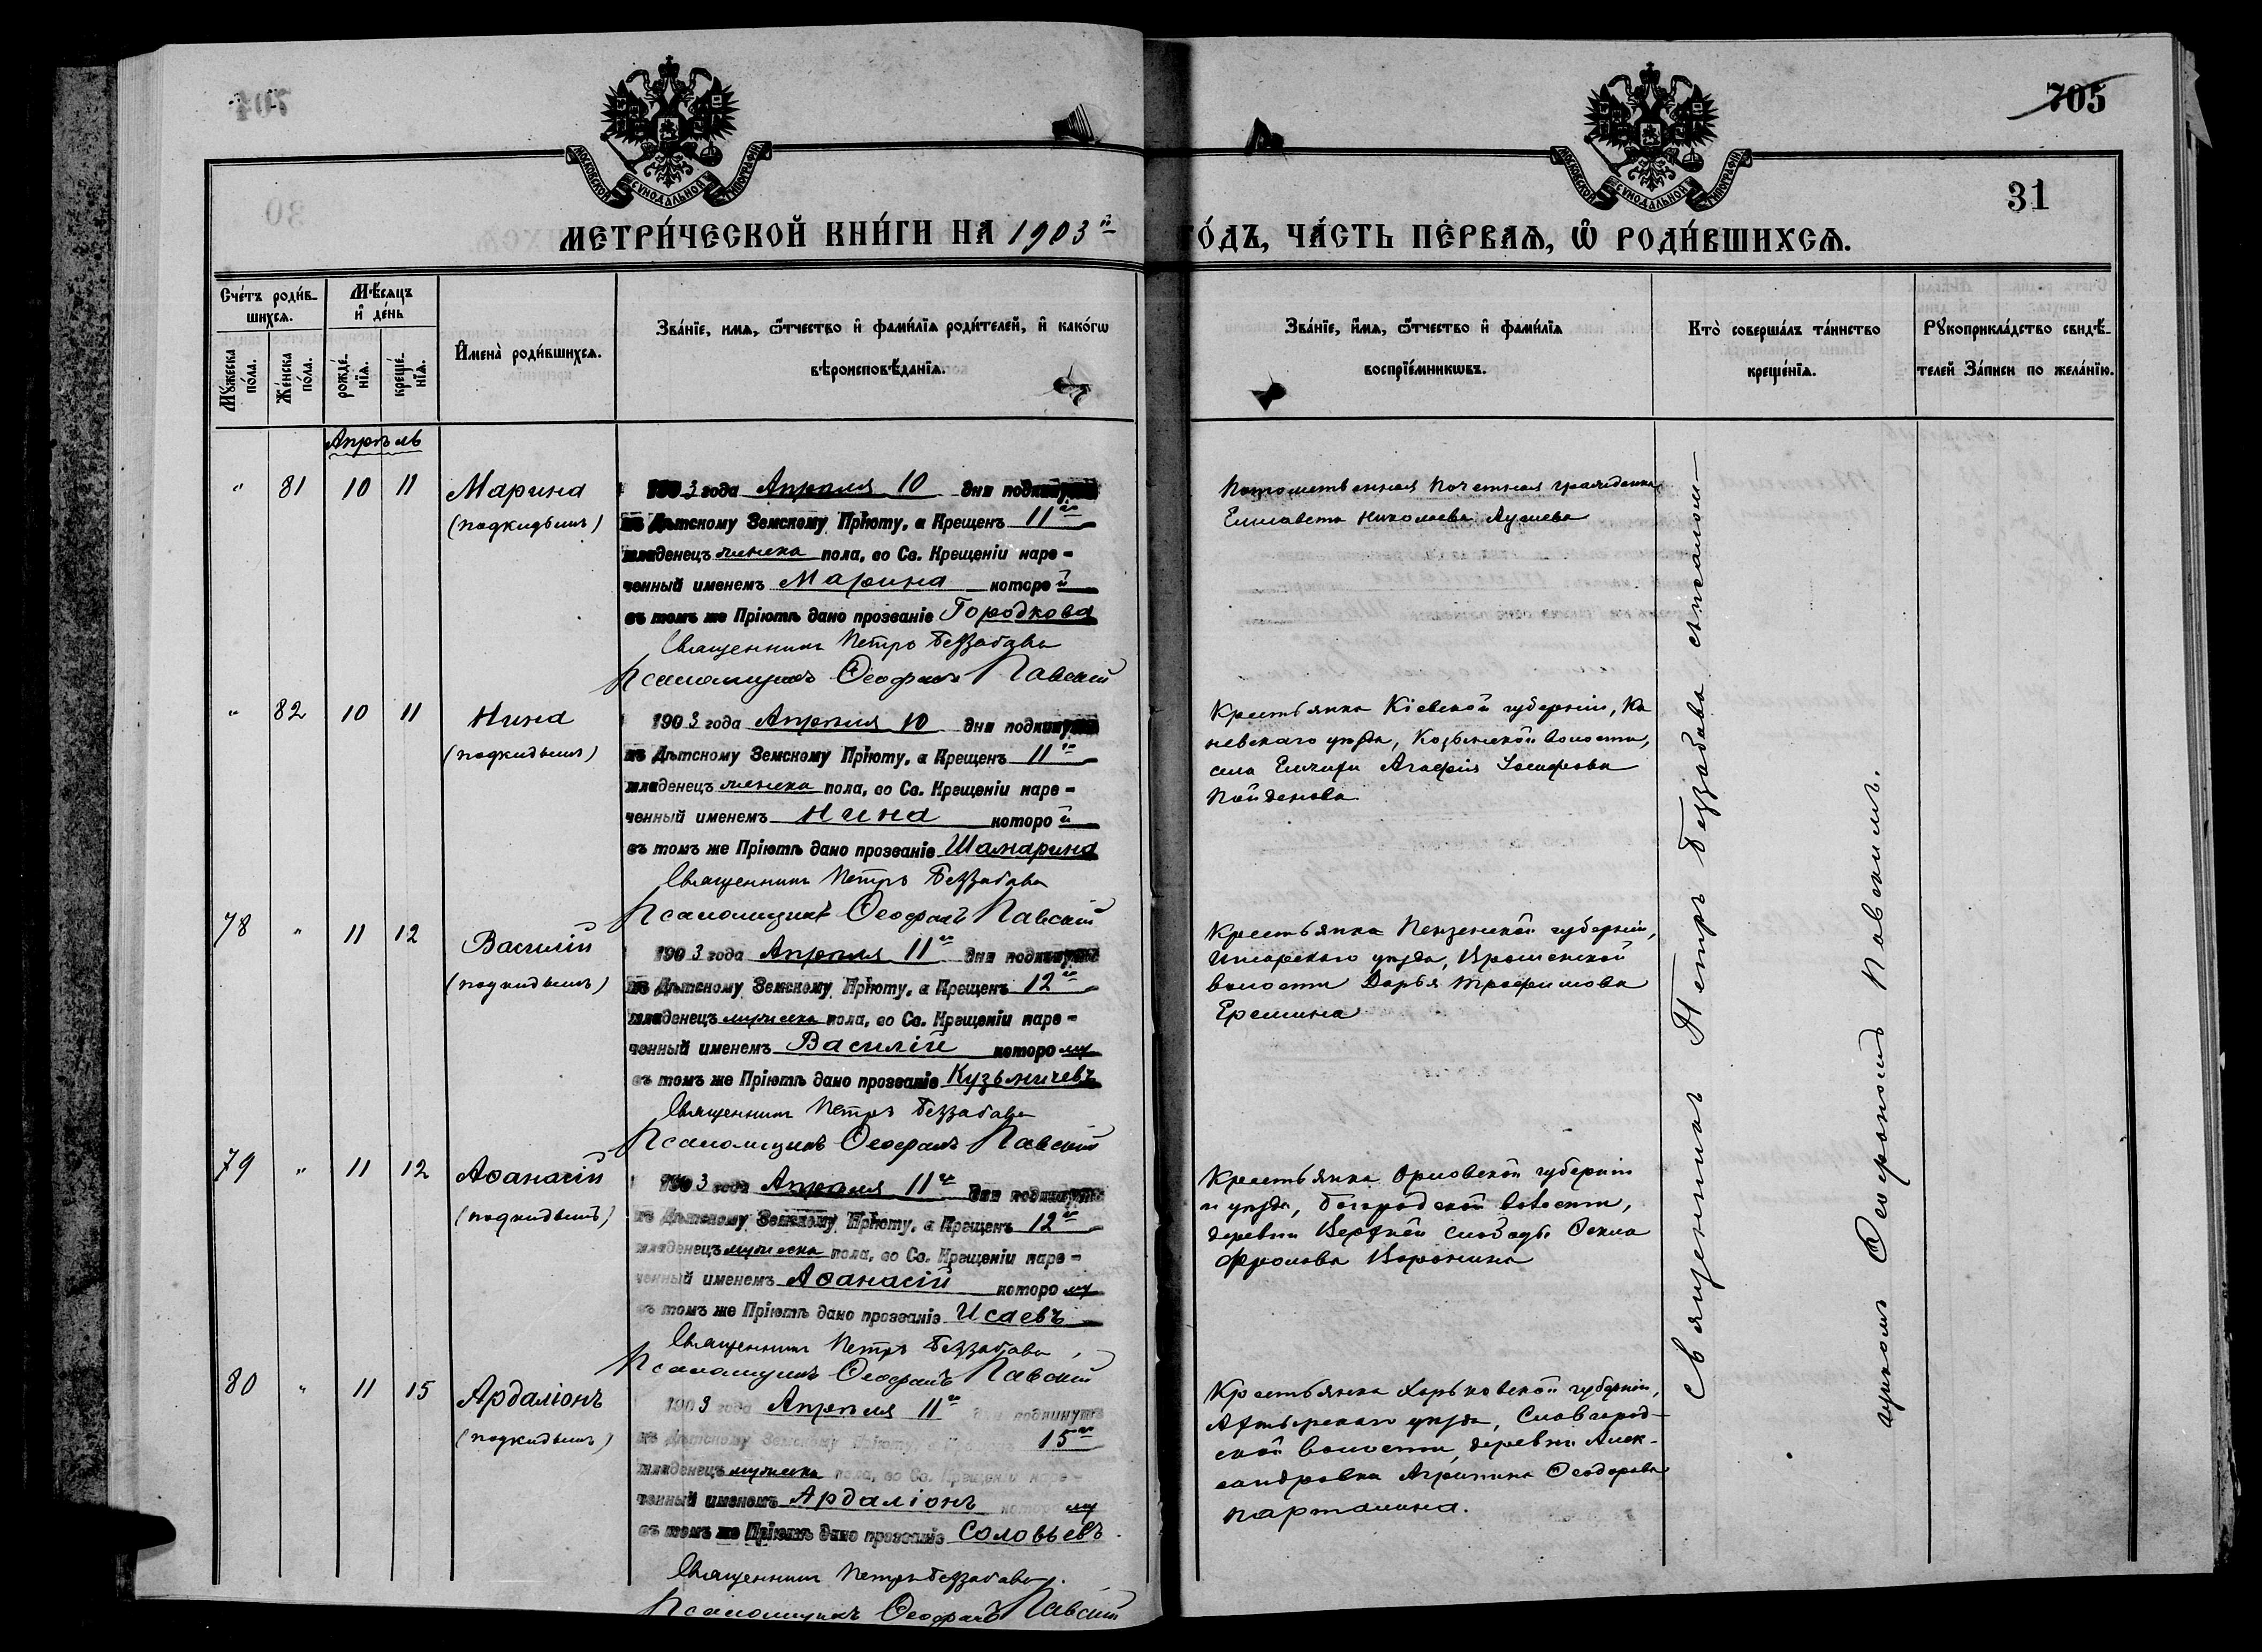 705
31
МОСКОВСКОЙ СѴНОДАЛЬНОЙ ТИПОГРАФІИ
МОСКОВСКОЙ СѴНОДАЛЬНОЙ ТИПОГРАФІИ
МЕТРИ́ЧЕСКОЙ КНИ́ГИ НА 1903й
ГО́ДЪ, ЧА́СТЬ ПЕ́РВАѦ, Ѽ РОДИ́ВШИХСѦ.
Сче́тъ роди́в-
шихсѧ.
Мꙋ́жеска по́ла.
Же́нска по́ла.
Мѣ́сѧцъ
и҆ де́нь
рожде́-
нїѧ.
креще́-
нїѧ.
И҆мена̀ роди́вшихсѧ.
Зва́нїе, имѧ, ѻ҆́тчество и҆ фами́лїѧ роди́телей, и҆ како́гѡ
вѣроисповѣ́данїѧ.
Зва́нїе, и҆́мѧ, ѻ҆́тчество и҆ фами́лїѧ
воспрїе́мникѡвъ.
Кто̀ соверша́лъ та́инство
креще́нїѧ.
Рꙋкоприкла́дство свидѣ́-
телей За́писи по жела́нїю.
Апрѣль
" 81 10 11 Марина
(подкидышъ)
1903 года Апрѣля 10 дня подкинута
къ Дѣтскому Земскому Пріюту, а Крещенъ 11го
младенецъ женска пола, во Св. Крещеніи наре-
ченный именемъ Марина которой
въ томъ же Пріютѣ дано прозваніе Городкова
Священникъ Петръ Беззабава
Псаломщикъ Ѳеофанъ Павскій
Потомственная почетная гражданка
Елисавета Николаева
" 82 10 11 Нина
(подкидышъ)
1903 года Апрѣля 10 дня подкинута
къ Дѣтскому Земскому Пріюту, а Крещенъ 11го
младенецъ женска пола, во Св. Крещеніи наре-
ченный именемъ Нина которой
въ томъ же Пріютѣ дано прозваніе Шамарина
Священникъ Петръ Беззабава
Псаломщикъ Ѳеофанъ Павскій
Крестьянка Кіевской губерніи, Ка
невскаго уѣзда, Козынской волости,
села Агафія Іосифова
78 " 11 12 Василій
(подкидышъ)
1903 года Апрѣля 11го дня подкинутъ
къ Дѣтскому Земскому Пріюту, а Крещенъ 12го
младенецъ мужеска пола, во Св. Крещеніи наре-
ченный именемъ Василій которому
въ томъ же Пріютѣ дано прозваніе Кузьмичевъ
Священникъ Петръ Беззабава
Псаломщикъ Ѳеофанъ Павскій
Крестьянка Пензенской губерніи,
Инсарскаго уѣзда,
волости Дарья Трофимова
Еремина
79 " 11 12 Аѳанасій
(подкидышъ)
1903 года Апрѣля 11го дня подкинутъ
къ Дѣтскому Земскому Пріюту, а Крещенъ 12го
младенецъ мужеска пола, во Св. Крещеніи наре-
ченный именемъ Аѳанасій которому
въ томъ же Пріютѣ дано прозваніе Исаевъ
Священникъ Петръ Беззабава
Псаломщикъ Ѳеофанъ Павскій
Крестьянка Орловской губерніи
и уѣзда, Богородской волости,
деревни Верхней Слободы Ѳекла
Фролова Воронина
80 " 11 15 Ардаліонъ
(подкидышъ)
1903 года Апрѣля 11го дня подкинутъ
къ Дѣтскому Земскому Пріюту, а Крещенъ 15го
младенецъ мужеска пола, во Св. Крещеніи наре-
ченный именемъ Ардаліонъ которому
въ томъ же Пріютѣ дано прозваніе Соловьевъ.
Священникъ Петръ Беззабава.
Псаломщикъ Ѳеофанъ Павскій
Крестьянка Харьковской губерніи,
Ахтырскаго уѣзда, Славгород-
ской волости, деревни Алек-
сандровки Агрипина Ѳеодорова
Парталина.
Священникъ Петръ Беззабава съ псалом-
щикомъ Ѳеофаномъ Павскимъ.